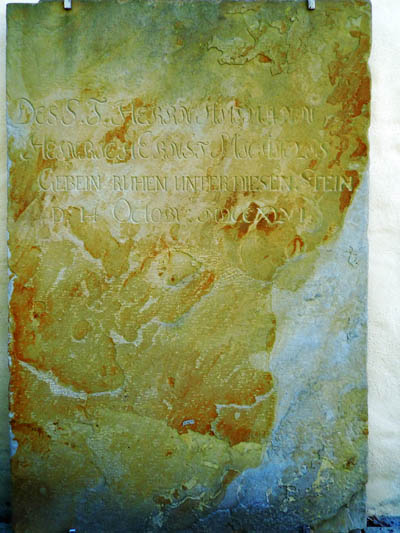 DES S. T. HERRN AMTMANN
HEINRICH ERNST
GEBEIN RUHEN UNTER DIESEN STEIN
D. 14 OCTOBR.